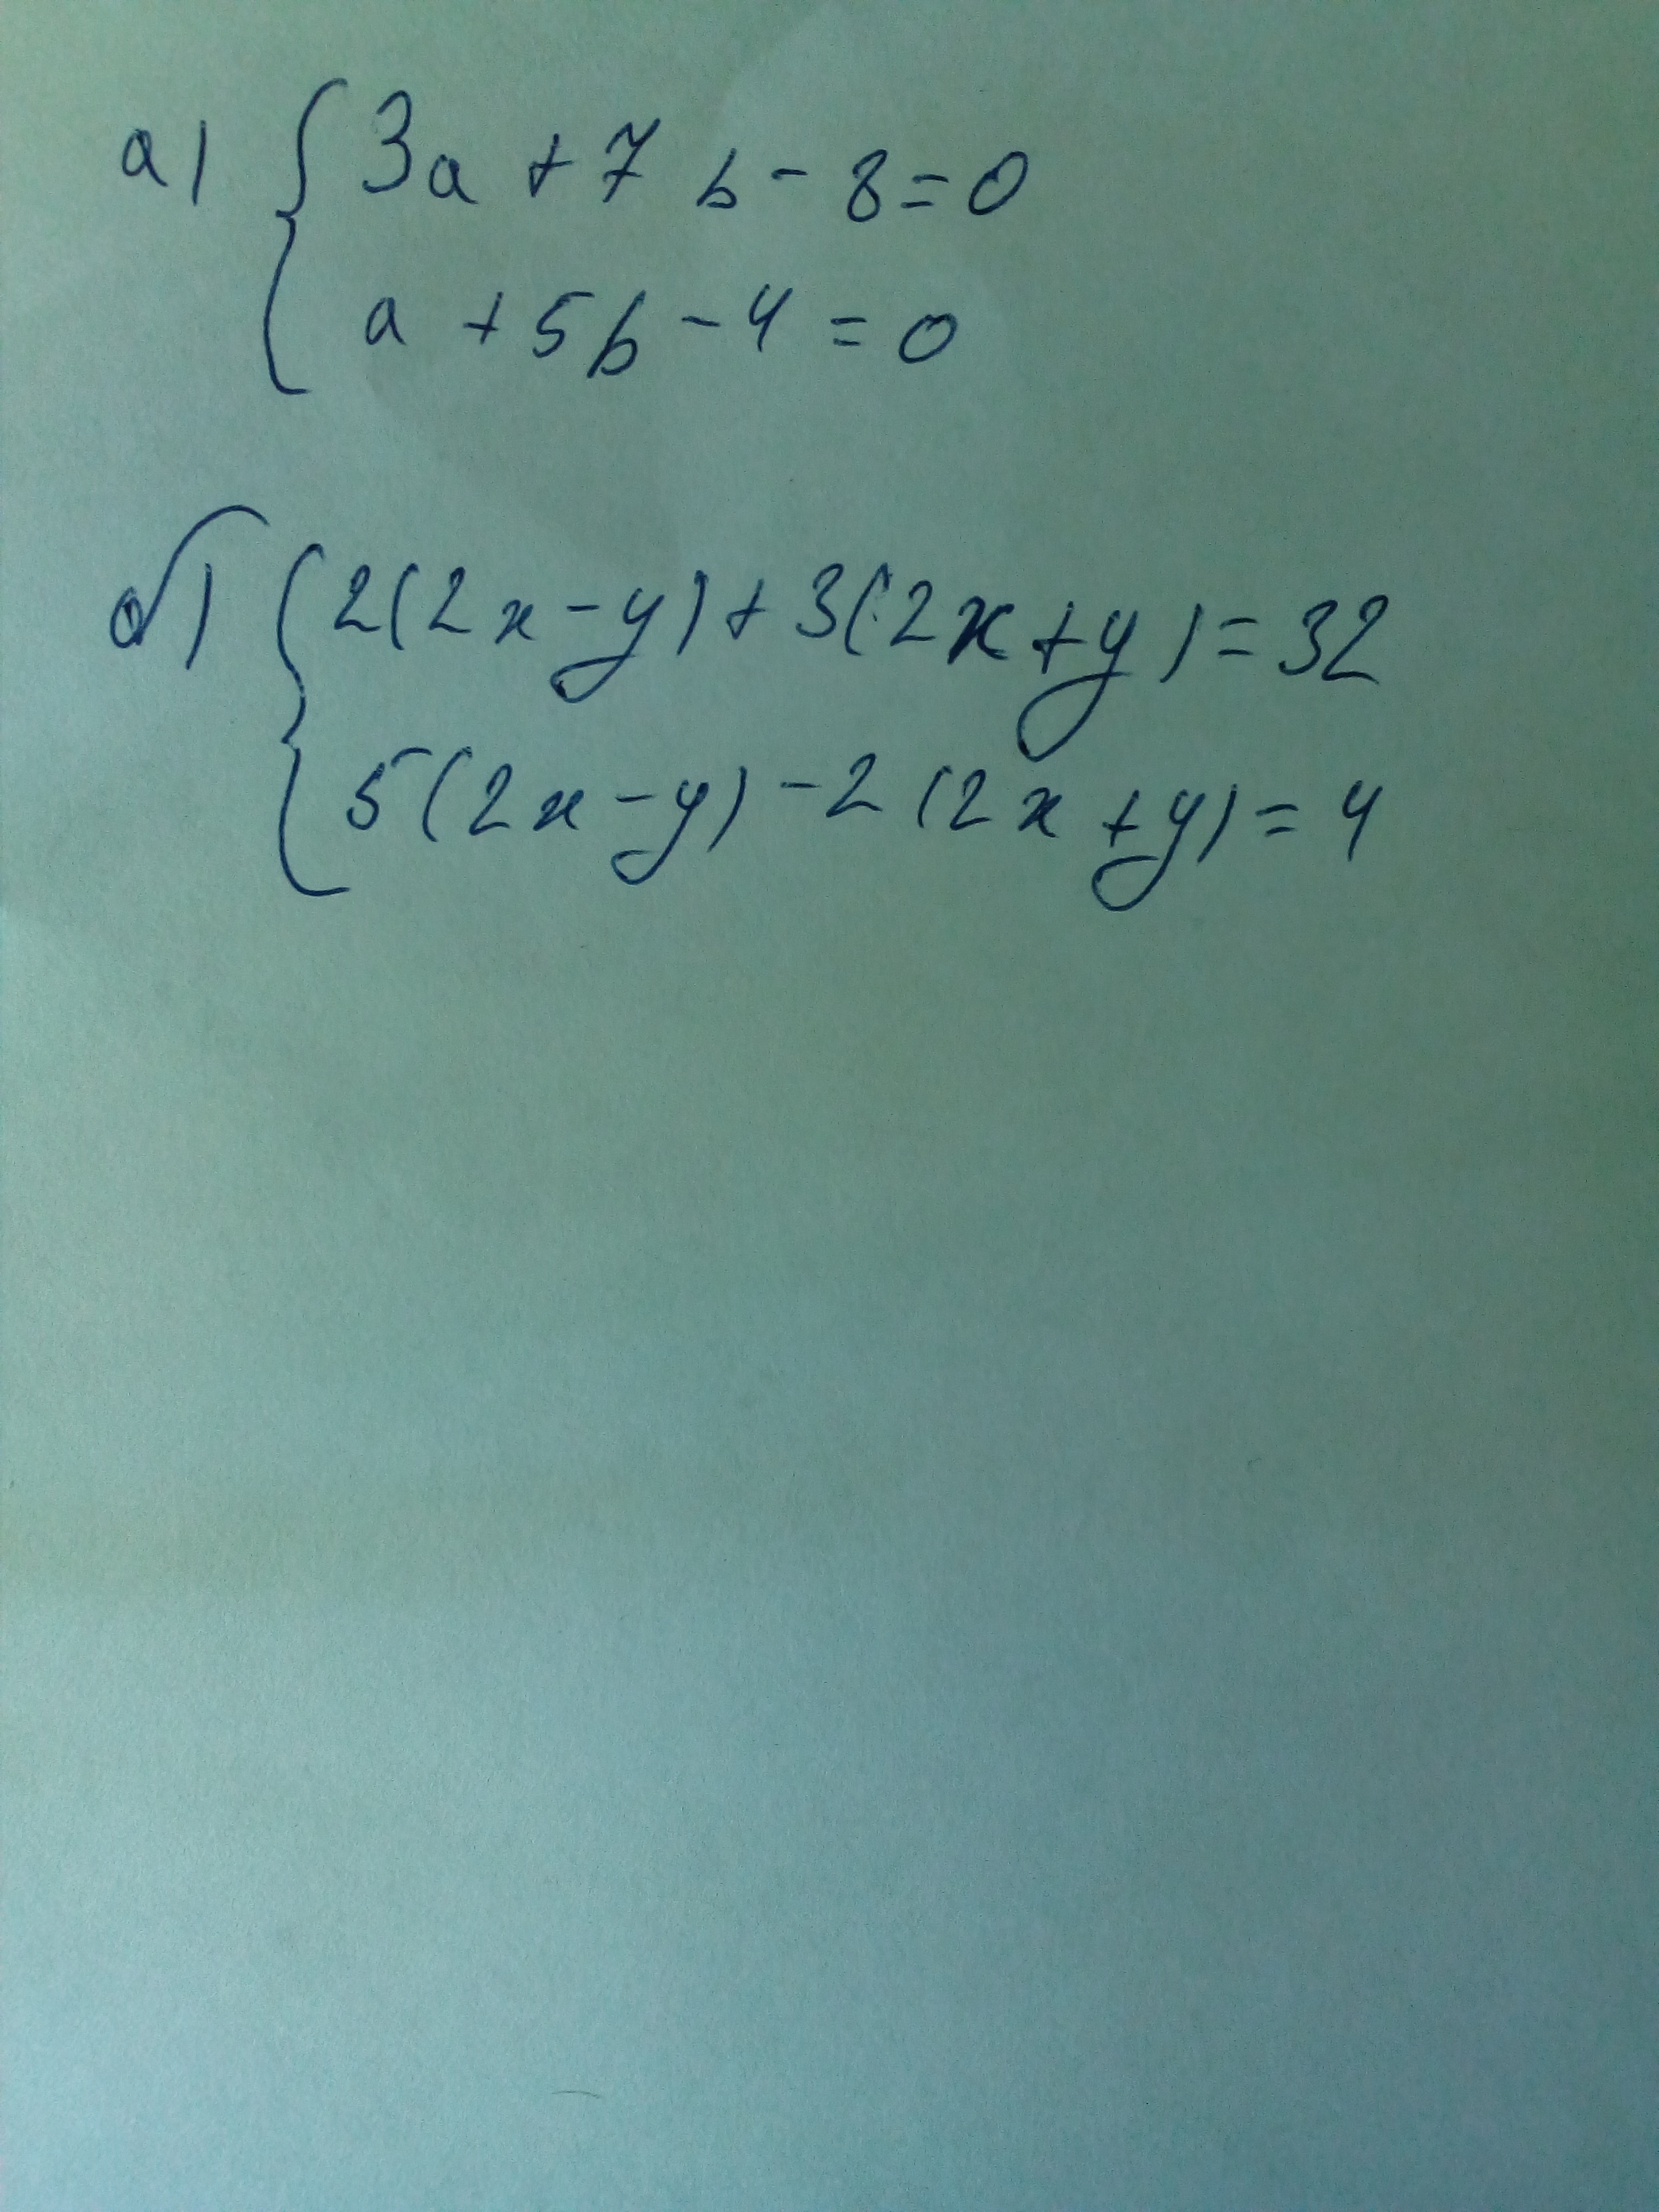 а) { 3a + 7 b - 8 = 0
a + 5b - 4 = 0
б) { 2(2x - y) + 3(2x + y) = 32
5(2x - y) - 2(2x + y) = 4